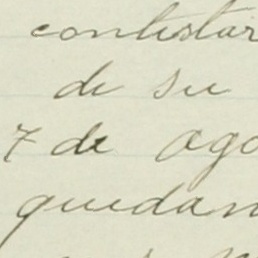 contestar
de su
7 de ago
quedan